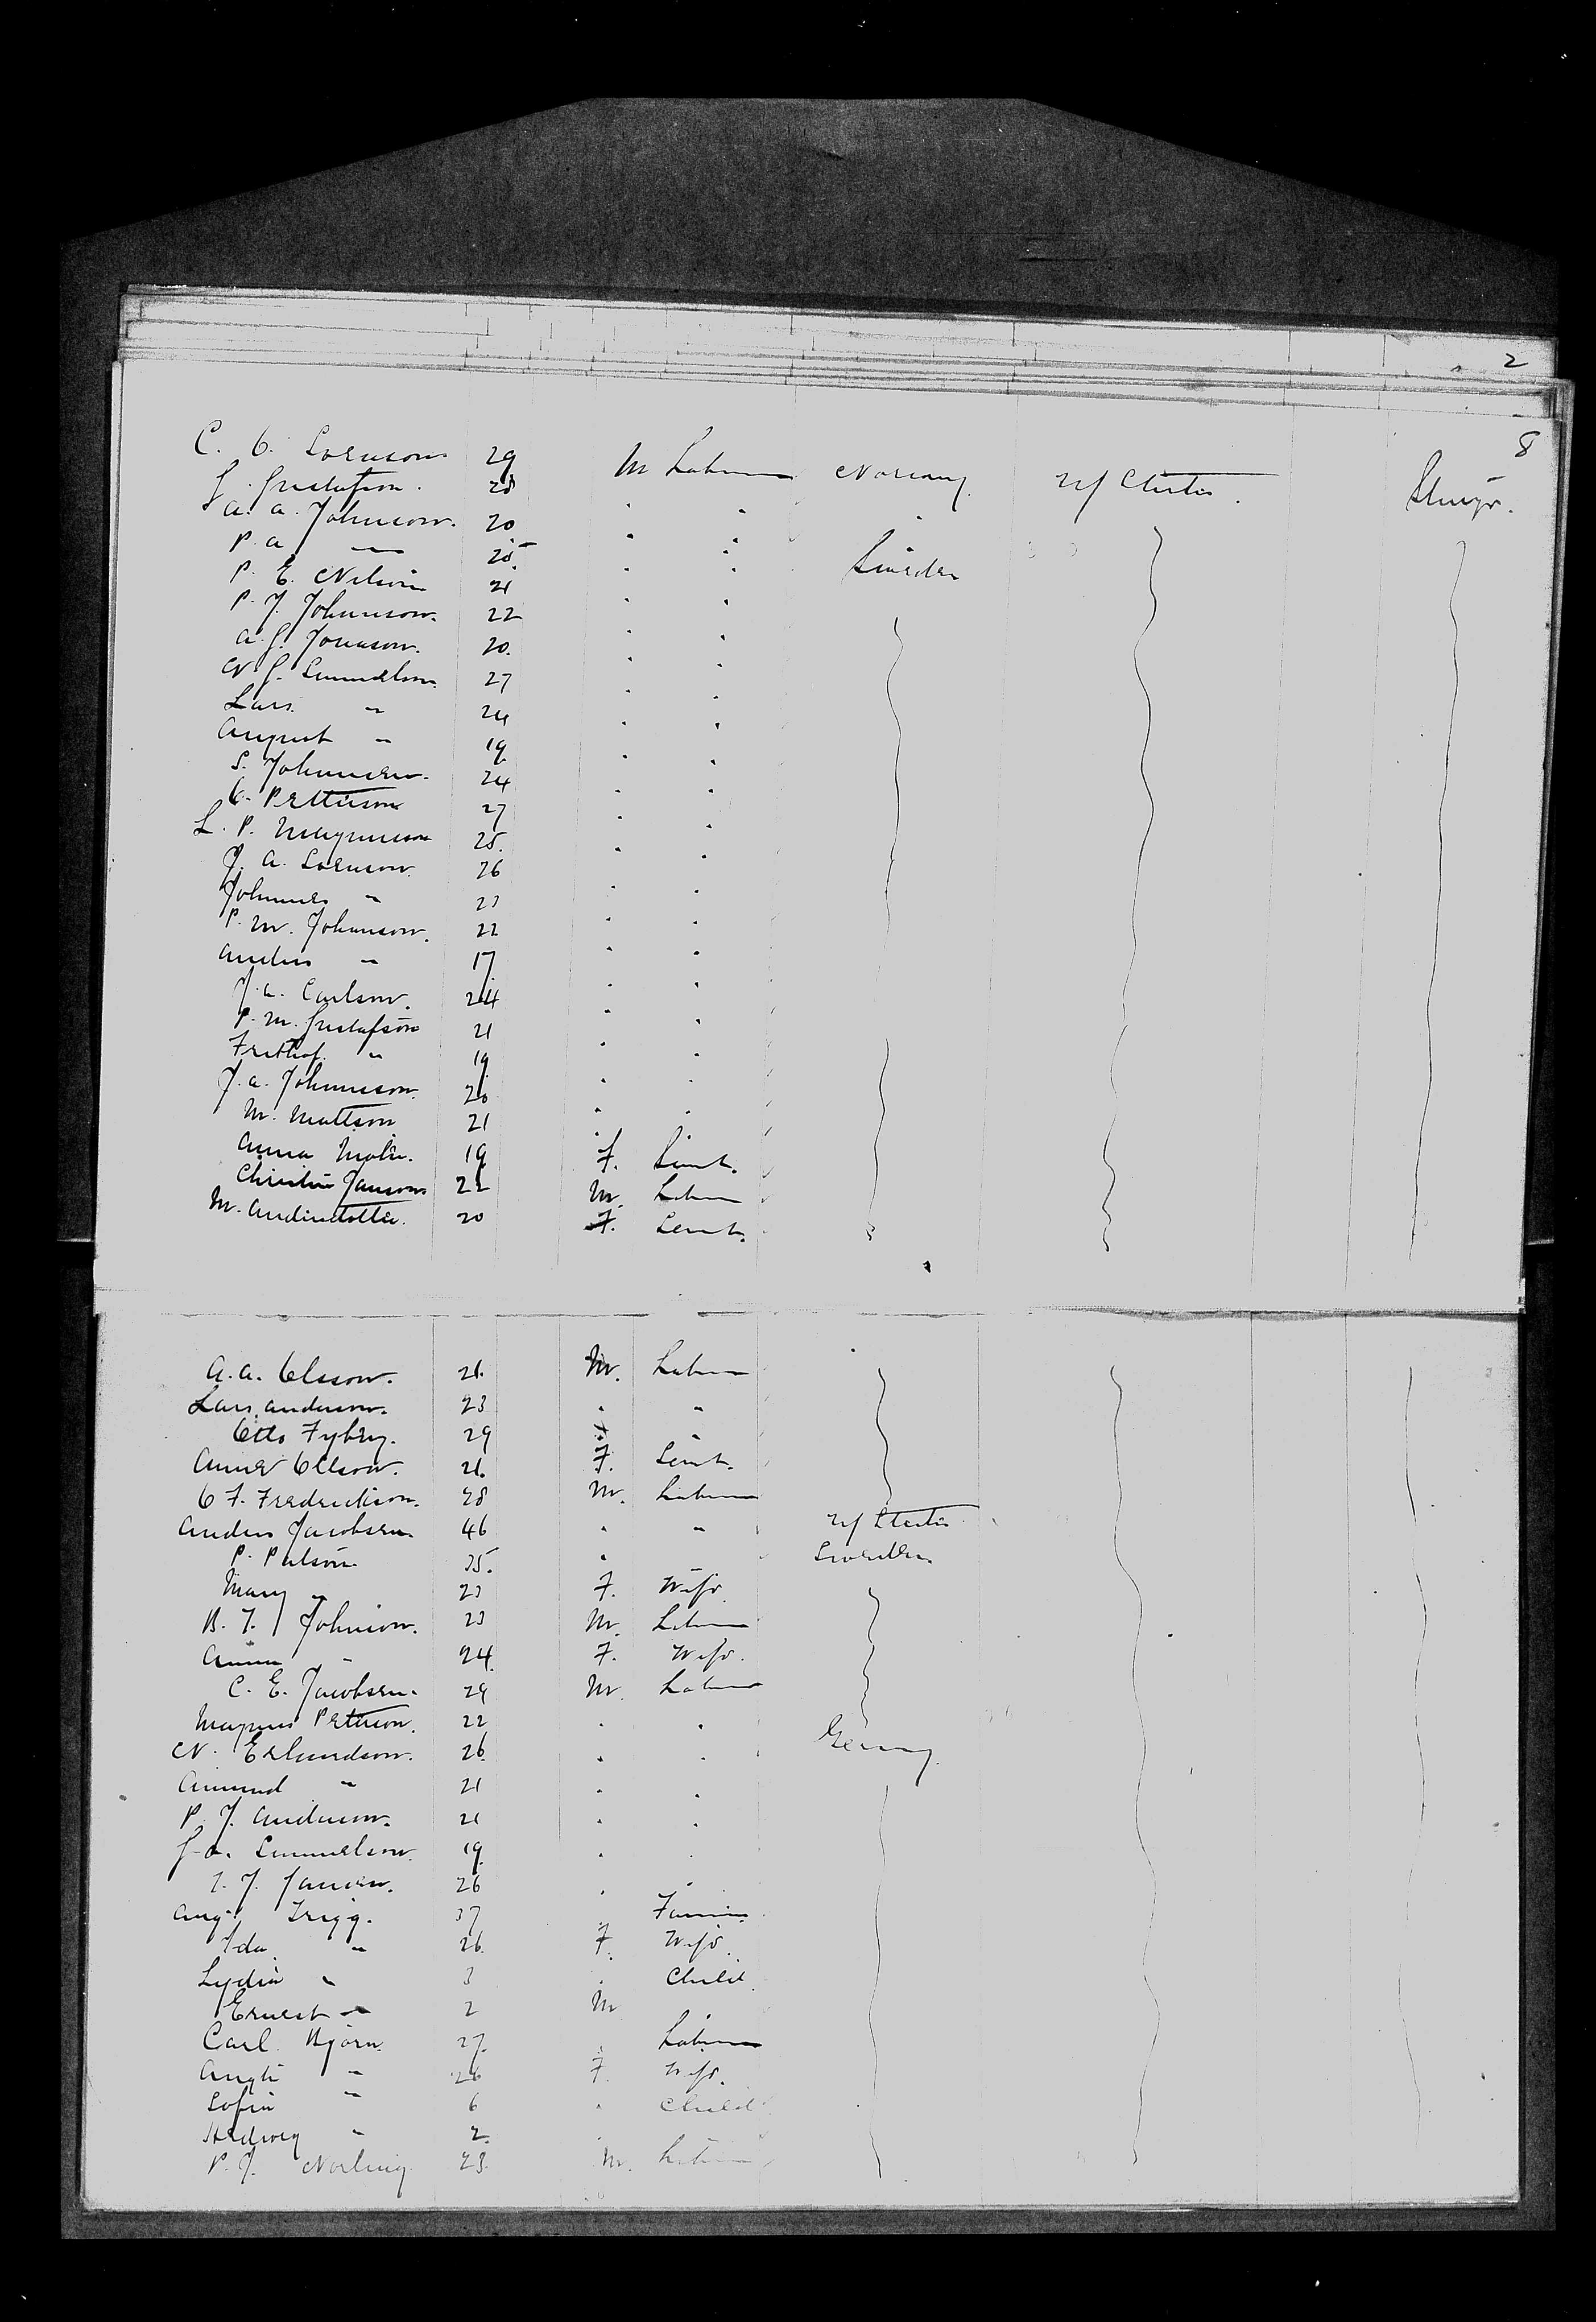 2
8
C. O. Sorenson 29 M Labr Norway U/ States Steerge.
J. Gustafson. 28 " "
A. A. Johnson. 20 " "
P. A. " 25 " " Sweden
P. E. Nelson 21 " "
P. J. Johnnson. 22 " "
A. G. Jonason. 20. " "
N. G. Samuelson 27 " "
Lars " 24 " "
August " 19 " "
S. Johansen. 24 " "
O. Petterson 27 " "
L. P. Magnusson 25. " "
J. A. Sorenson. 26 " "
Johannes " 23 " "
P. M. Johanson. 22 " "
Anders " 17 " "
J. A. Carlson. 24 " "
P. M. Gustafson 21 " "
Frithiof " 19 " "
J. A. Johnnson. 20 " "
M. Mattson 21 " "
Anna Molin. 19 F. Servt.
Christin Janson 22 M. Labr
M. 20 F. Servt.
A. A. Olsson. 21. M. Labr
Lars Anderson. 23 " "
Otto Fyberg. 29 "
Anna Ollson. 21. F. Servt.
O F. Fredrickson. 28 M. Labr
Anders Jacobsen 46 " " U/ States
P. Palson 35. " Sweden
Mary " 23 F. Wife
B. T. Johnson. 23 M. Labr
Anna " 24. F. Wife.
C. E. Jacobsen. 29 M. Labr
Magnus Petterson. 22 " "
N. Erlandson. 26. " " Germany
Amund " 21 " "
P. J. Anderson. 21 " "
G. A. Samuelson. 19 " "
J. Jansen. 26 " "
Aug. Trigg. 37 " Farmer
Ida " 26 F. Wife.
Lydia " 3 " Child.
Ernest " 2 M
Carl Bjorn. 27. " Labr
" 26 F. Wife.
Sofia " 6 " Child
Hedwig " 2 "
P. J. Norling 23. M. Labr